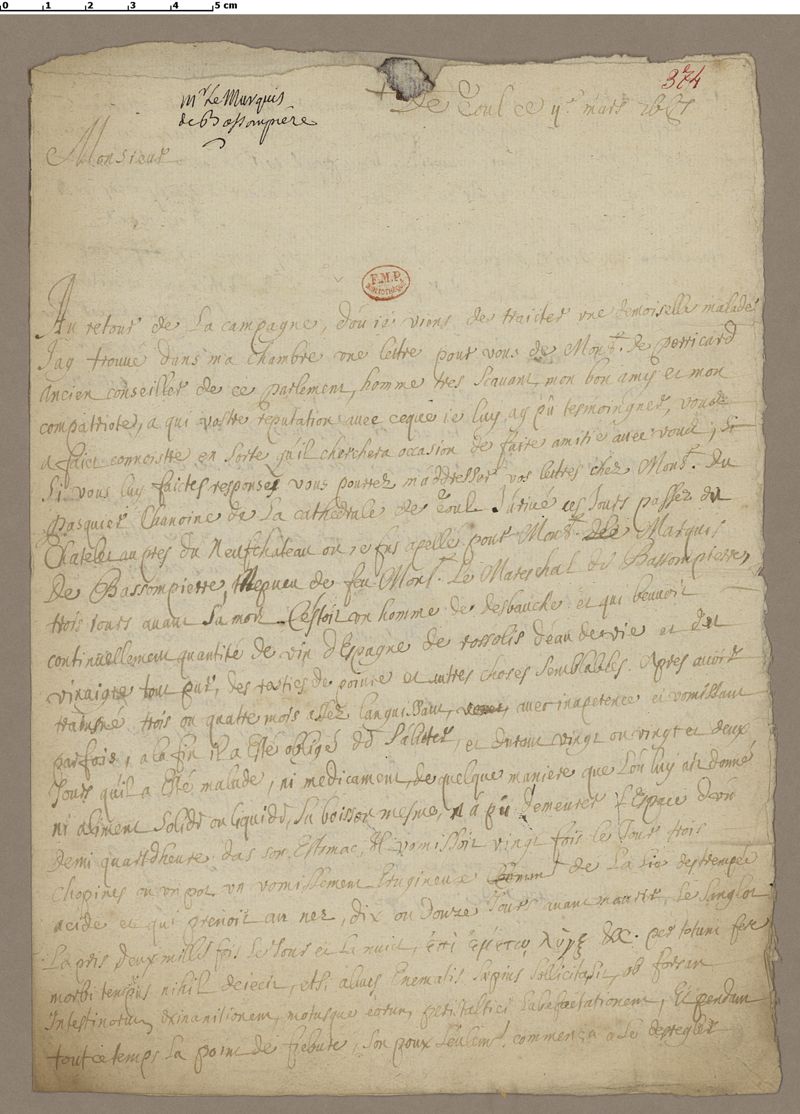 0 1 2 3 4 5 cm
374
Mr Le Marquis
de Bassompiere
De Toul ce mars
Monsieur
F.M.P.
BIBLIOTHEQUE
Au retour de La campagne, d'où ie viens de traicter vne demoiselle malade
J'ay trouué dans ma chambre vne lettre pour vous de Monsr. de perricard
ancien conseiller de ce parlement, homme tres scauant, mon bon amy et mon
compatriote, a qui vostre reputation auec ceque ie luy ay pû tesmoingner, vous
a faict connoistre en sorte qu'il cherchera occasion de faire amitié auec vous; et
Si vous luy faictes response, vous pourrez m'addresser vos lettres chez Monsr. Du
pasquier Chanoine de La cathedrale de Toul. J'ariué ces Jours passez du
Chatelet aupres du Neufchateau ou ie fus apellé pour Monsr. Le Marquis
De Bassompierre, Nepueu de feu Monsr. Le Mareschal de Bassompierre,
trois iours auant Sa mort. C'estoit vn homme de desbauche et qui beuuoit
continuellement quantité de vin d'Espagne de rossolis d'eau de vie et du
vinaigre tout pur, des rosties de poiure et autres choses Semblables. Apres auoir
traisné trois ou quatre mois assez languissant, auec inapetence et vomissant
parfois, a la fin il a esté obligé de S'aliter, et durant vingt ou vingt et deux
Jours qu'il a esté malade, ni medicament, de quelque maniere que l'on luy ait donné
ni aliment Solide ou liquide, Sa boisson mesme, n'a pû demeurer l'Espace d'vn
Demi quart d'heure das son Estomac, Il vomissoit vingt fois le Jour trois
Chopines ou vn pot, vn vomissement Erugineux de La lie destrempée
acide et qui prenoit au nez, dix ou douze Jours auant mourir, Le Sanglot
L'a pris deux mille fois Le Jour et La nuict, ἐπὶ ἐμέτῳ λὺγξ &c. per totum fere
morbi tempus nihil deiecit, etsi aluus Enematis Sæpius Sollicitasit, ob forsan
Intestinorum exinanitionem, motusque eorum peristaltici labefactationem, Et pendant
tout ce temps La point de fiebure, Son poux Seulemt. commença a Se desregler